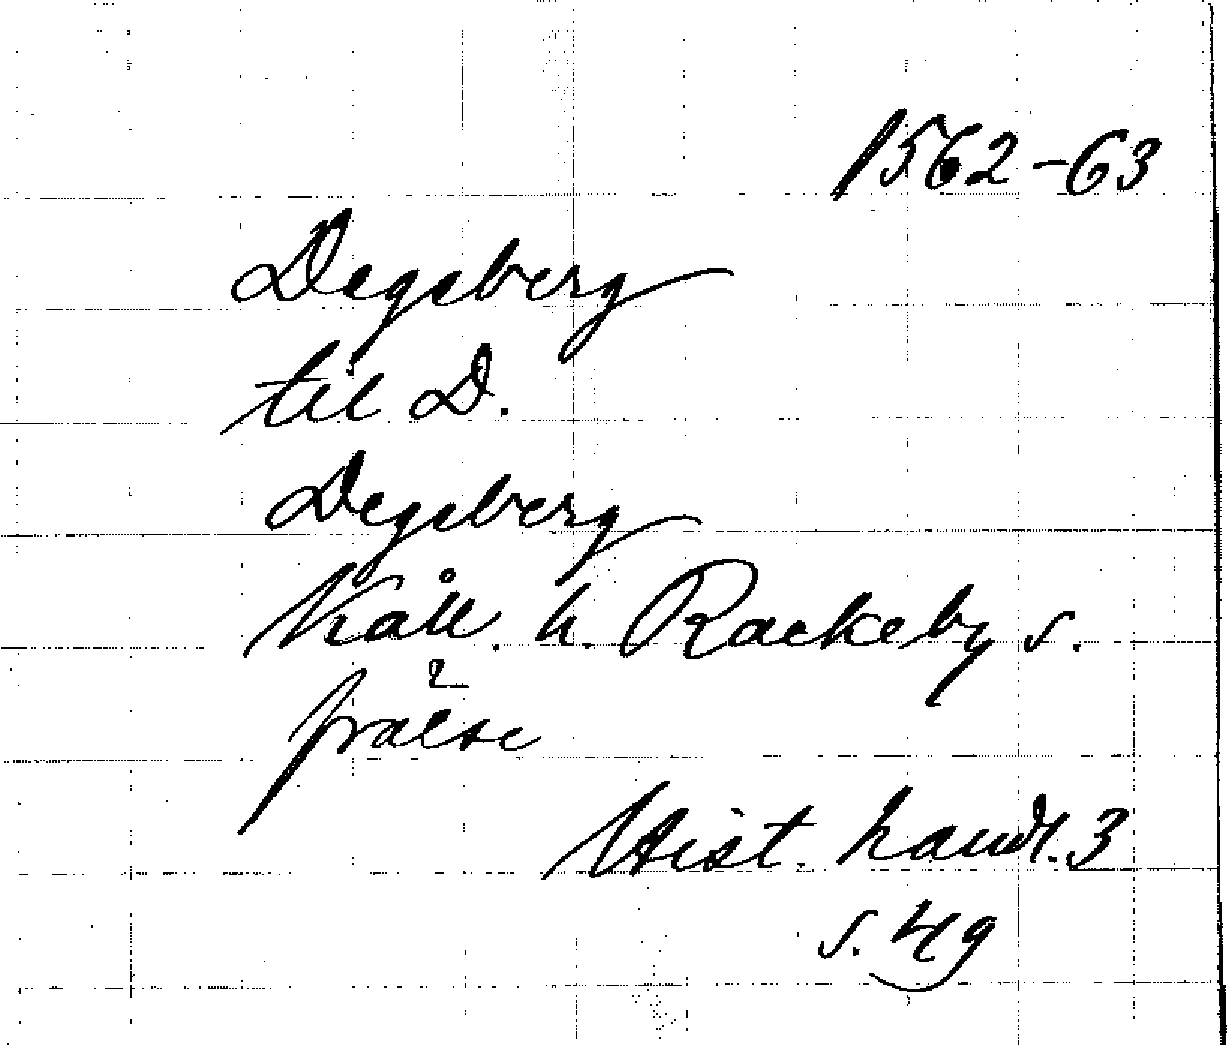 1562-63
Degeberg
til D.
Degeberg
Kåll. h. Rackeby s.
2
frälse
Hist. handl. 3
s. 49